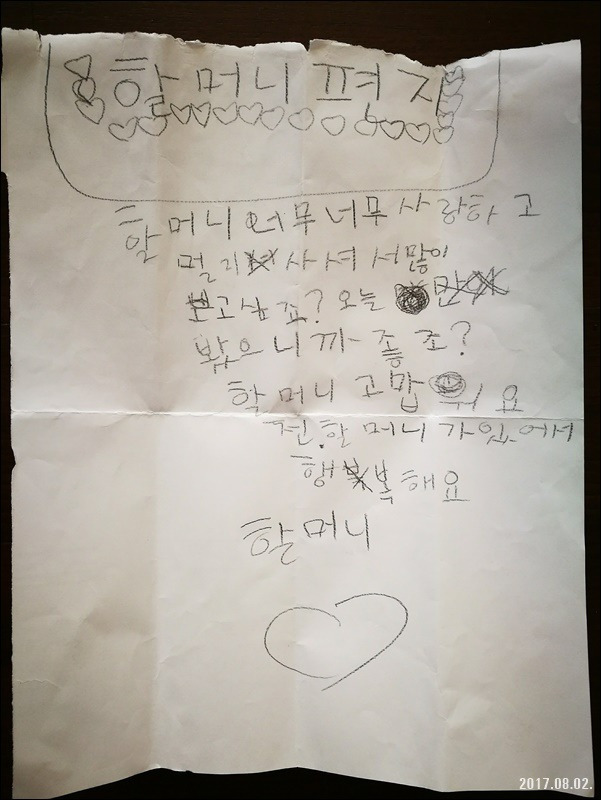 할머니 편지
할머니 너무너무 사랑하고
멀리 사셔서 많이
보고싶죠? 오늘
봤으니까 좋죠?
할머니 고맙워요
전 할머니가 있어서
행복해요
할머니
2017.08.02.